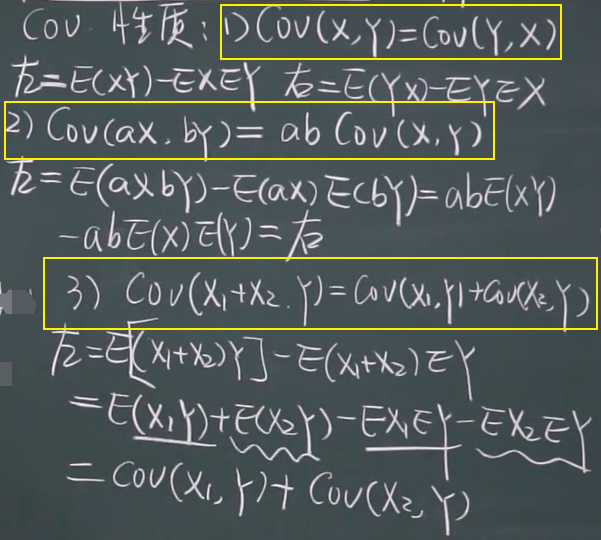 Cov 性质: 1) Cov(X,Y)=Cov(Y,X)
左=E(XY)-EXEY 右=E(YX)-EYEX
2) Cov(aX, bY)= ab Cov(X,Y)
左=E(aXbY)-E(aX)E(bY)=abE(XY)
-abE(X)E(Y)=右
3) Cov(X₁+X₂,Y)=Cov(X₁,Y)+Cov(X₂,Y)
左=E[(X₁+X₂)Y]-E(X₁+X₂)EY
=E(X₁Y)+E(X₂Y)-EX₁EY-EX₂EY
=Cov(X₁,Y)+Cov(X₂,Y)